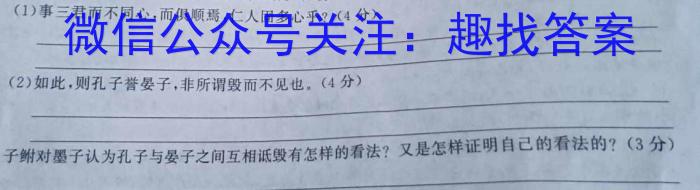 (1)事三君而不同心,而俱顺焉,仁人固多心乎?(4分)
微信公众号关注：趣找答案
(2)如此,则孔子誉晏子,非所谓毁而不见也。(4分)
子鲋对墨子认为孔子与晏子之间互相诋毁有怎样的看法？又是怎样证明自己的看法的？(3分)